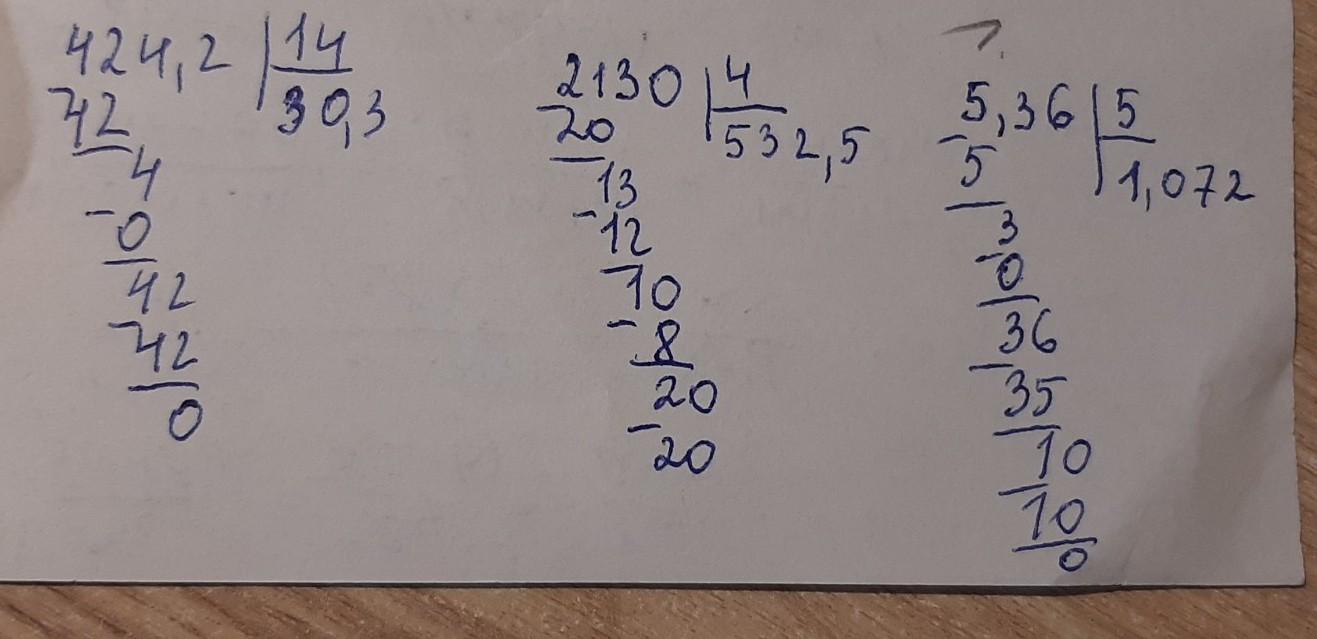 424,2 | 14
42 30,3
4
- 0
42
- 42
0
2130 | 4
- 20 532,5
13
- 12
10
- 8
20
- 20
5,36 | 5
- 5 1,072
3
- 0
36
- 35
10
- 10
0